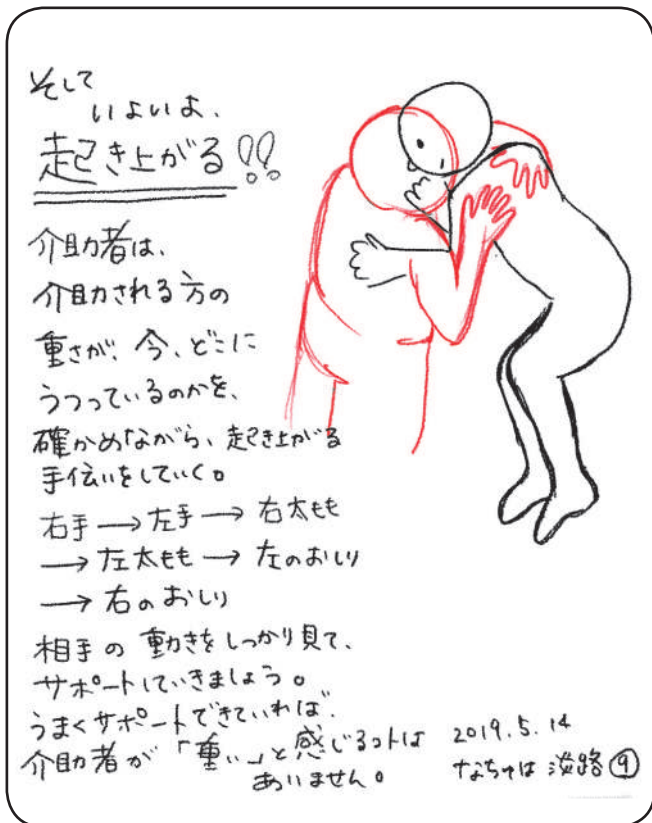 そして
いよいよ、
起き上がる!!
介助者は、
介助される方の
重さが、今、どこに
うつっているのかを、
確かめながら、起き上がる
手伝いをしていく。
右手→左手→右太もも
→左太もも→左のおしり
→右のおしり
相手の動きをしっかり見て、
サポートしていきましょう。
うまくサポートできていれば、
介助者が「重い」と感じるコトは
ありません。
2019.5.14
なちゅは 淡路⑨